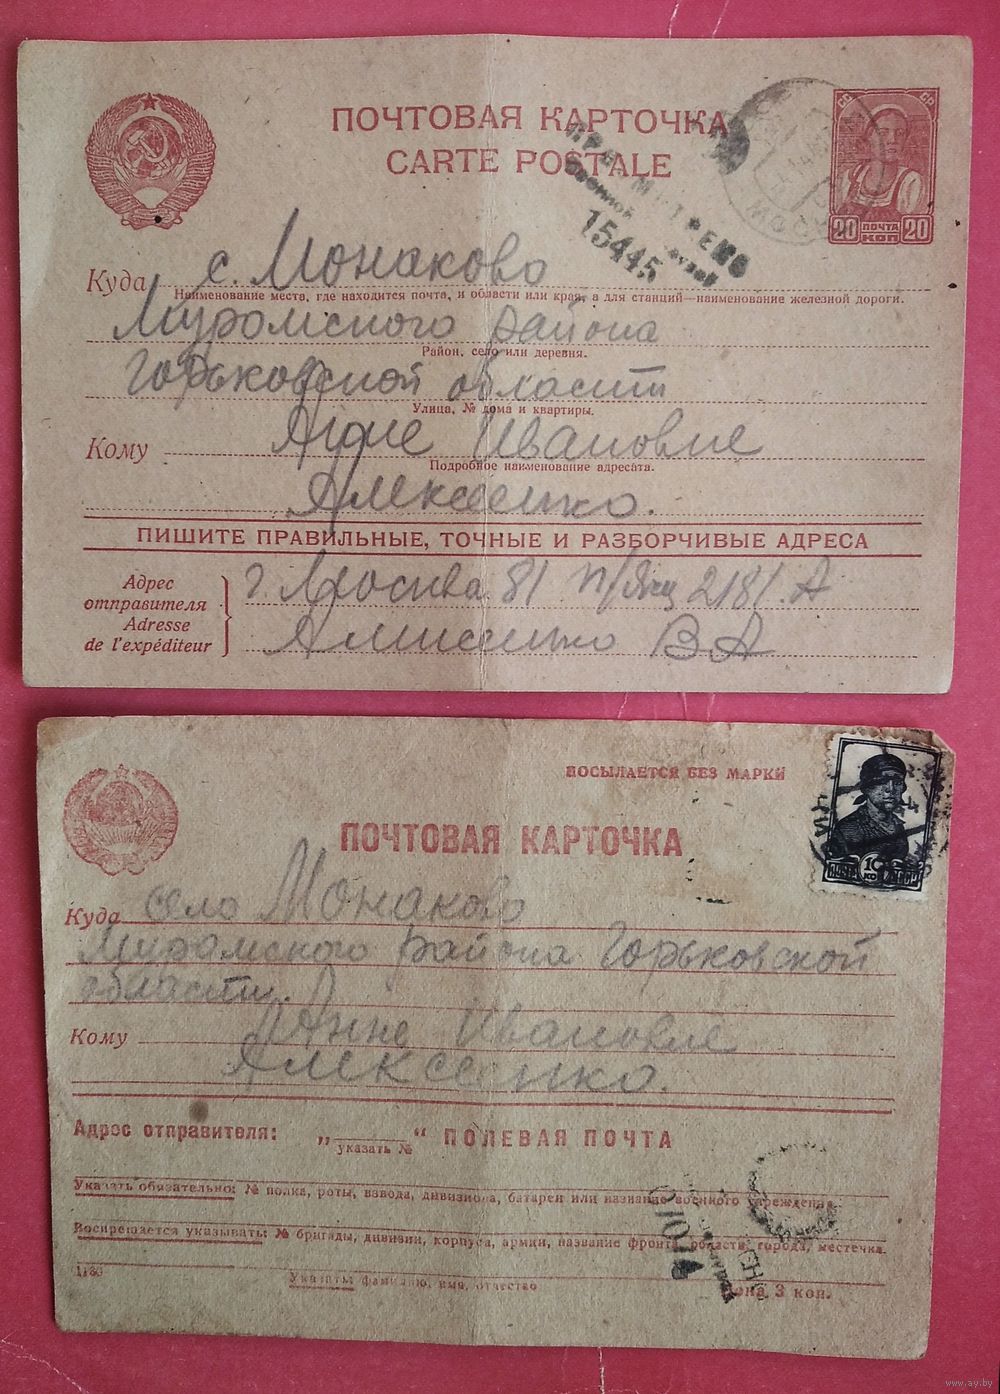 ПОЧТОВАЯ КАРТОЧКА
CARTE POSTALE
СС СР
20 ПОЧТА КОП 20
15445
Куда с. Монаково
Наименование места, где находится почта, и области или края, а для станций—наименование железной дороги.
Муромского района
Район, село или деревня.
Горьковской области
Улица, № дома и квартиры.
Кому Анне Ивановне
Подробное наименование адресата.
Алексеенко.
ПИШИТЕ ПРАВИЛЬНЫЕ, ТОЧНЫЕ И РАЗБОРЧИВЫЕ АДРЕСА
Адрес отправителя
Adresse de l'expéditeur
г. Москва 81 п/ящ 2181. А
В А
ПОСЫЛАЕТСЯ БЕЗ МАРКИ
ПОЧТОВАЯ КАРТОЧКА
Куда село Монаково
Муромского района Горьковской
области.
Кому Анне Ивановне
Алексеенко.
Адрес отправителя: „ “ ПОЛЕВАЯ ПОЧТА
указать №
Указать обязательно: № полка, роты, взвода, дивизиона, батареи или название военного учреждения.
Воспрещается указывать: № бригады, дивизии, корпуса, армии, название фронта, области, города, местечка.
Указать фамилию, имя, отчество
Цена 3 коп.
www.ay.by